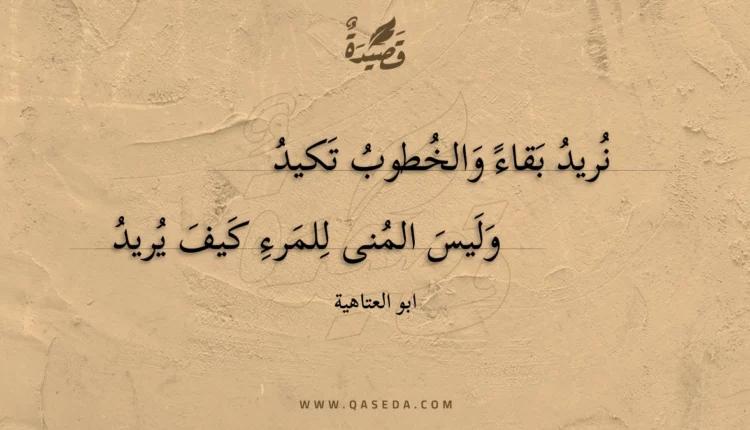 قَصِيدَةٌ
نُريدُ بَقاءً وَالخُطوبُ تَكيدُ
وَلَيسَ المُنى لِلمَرءِ كَيفَ يُريدُ
ابو العتاهية
WWW.QASEDA.COM